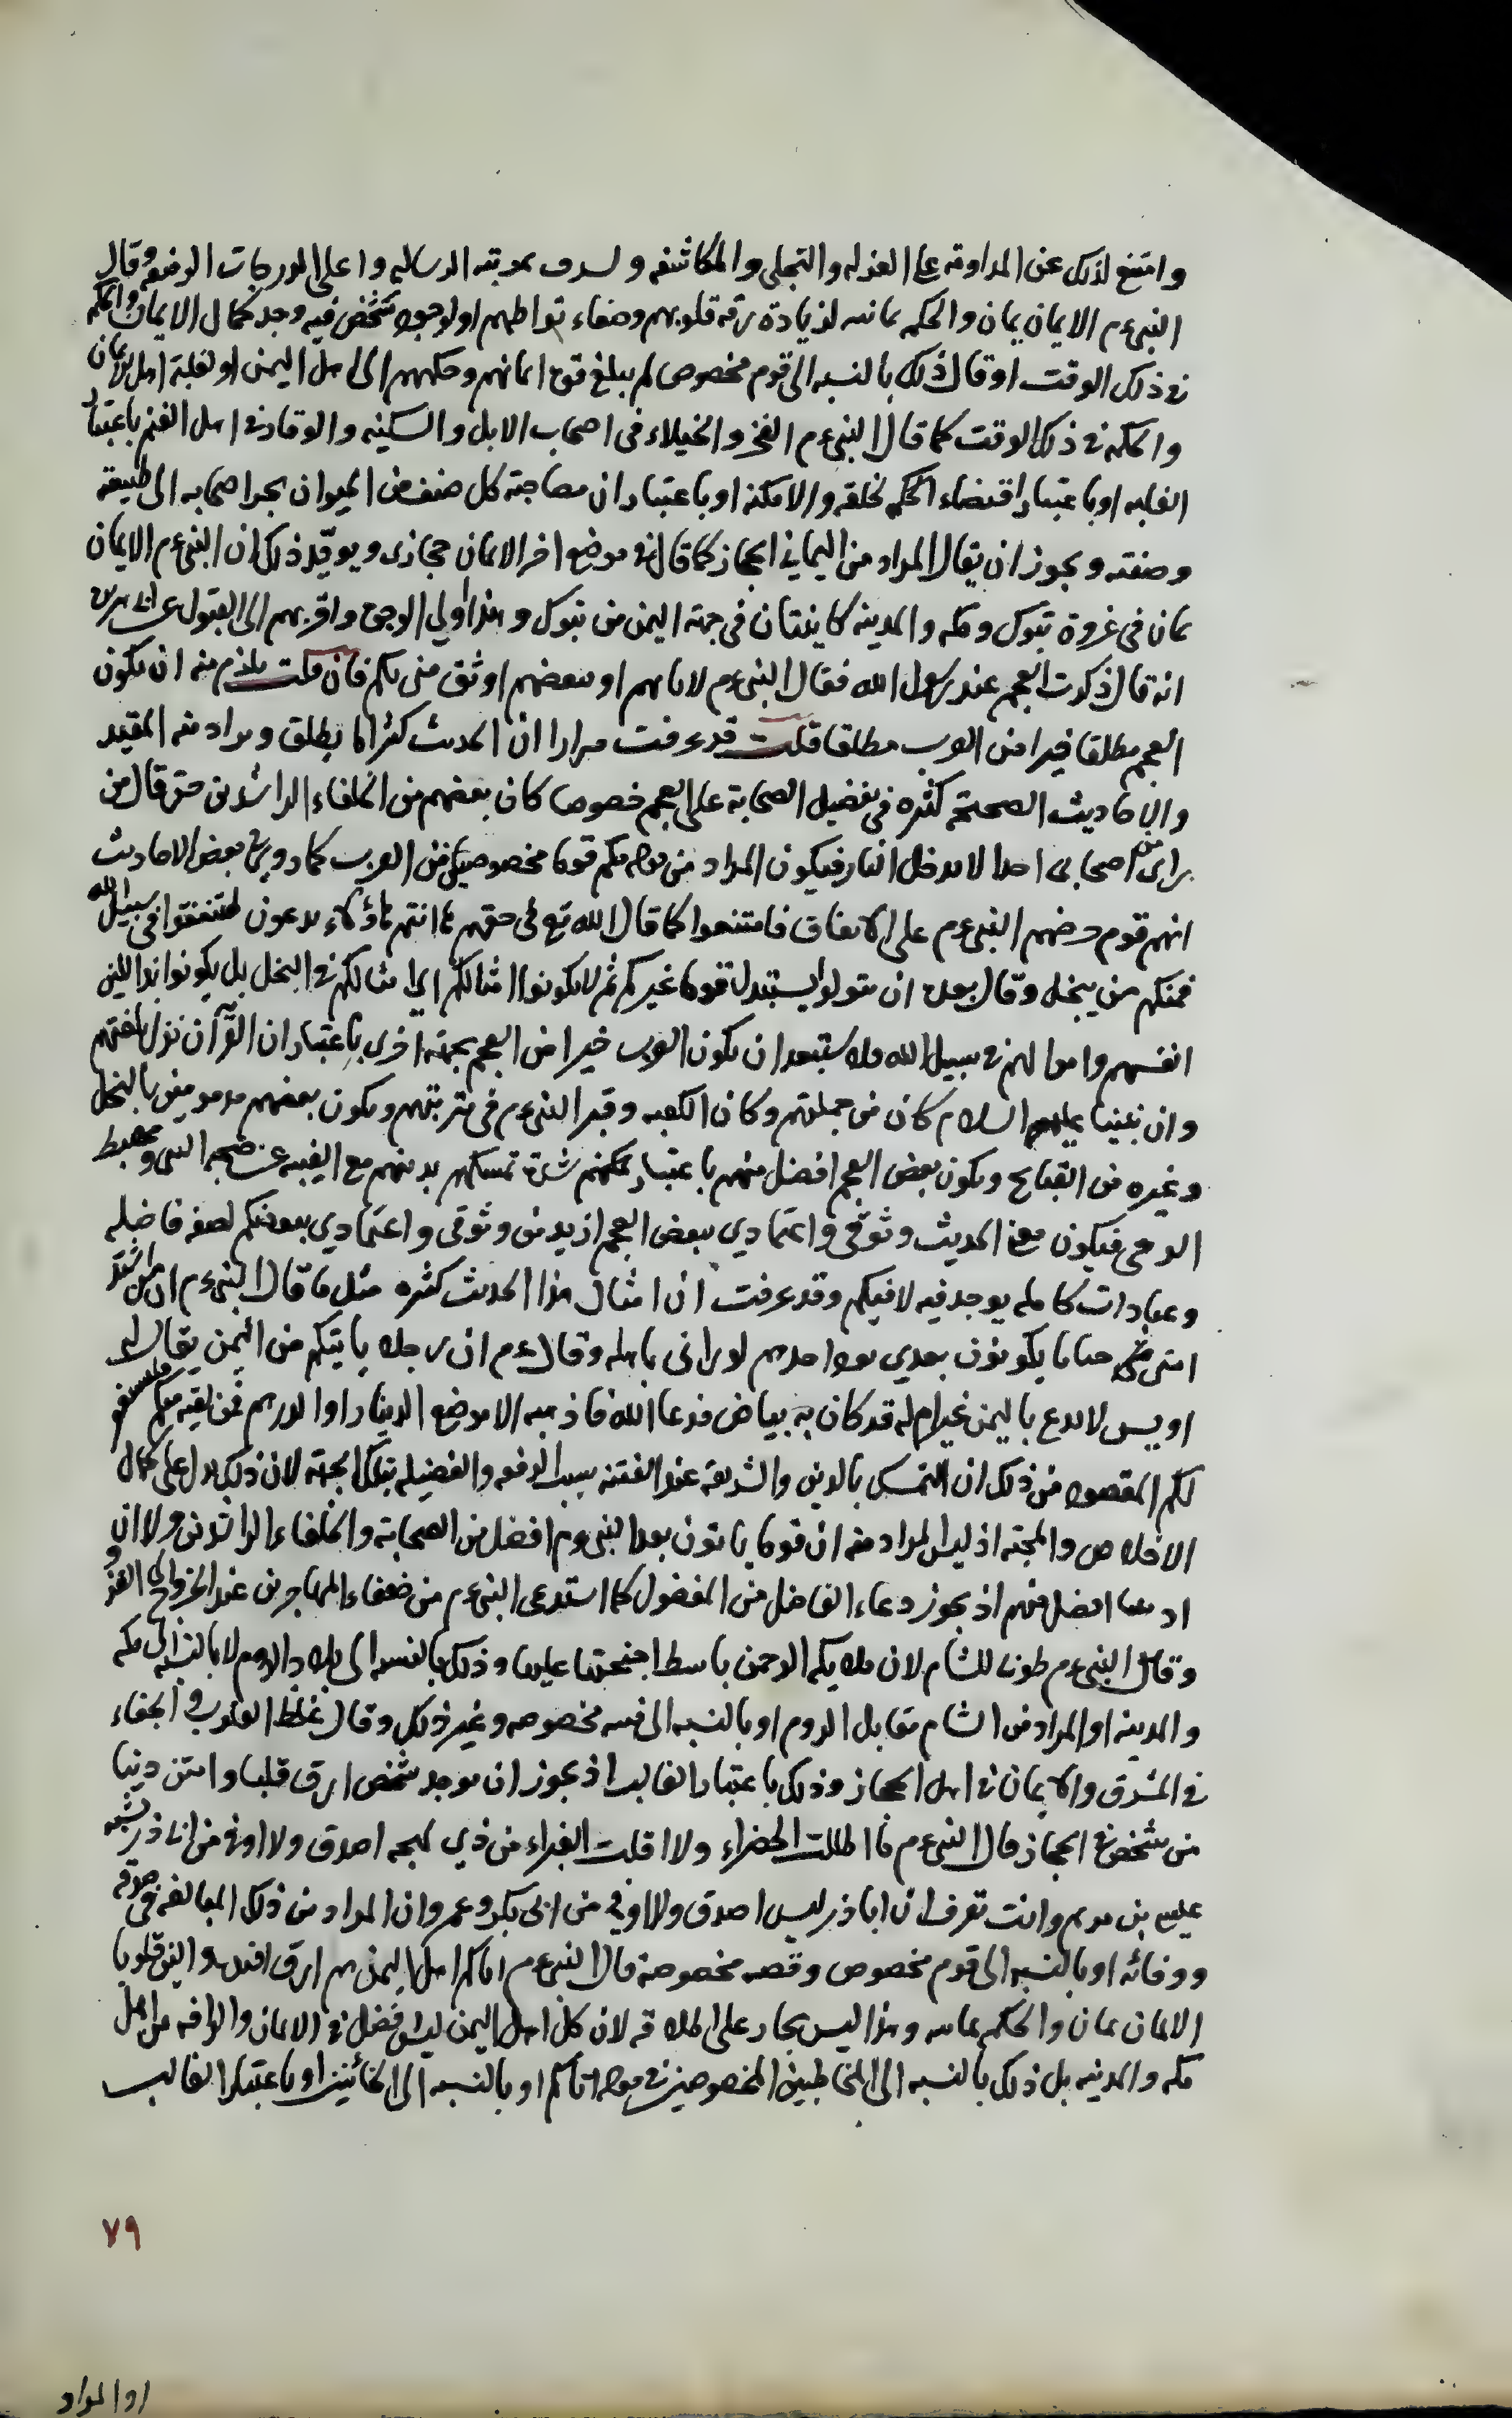 وامتنع لذلك عن المداومة على العزله والتجلى والمكاشفه و بمرتبه الرساله واعلى الدرجات الرفيعه وقال
النبى ءم الايمان يمان والحكمه يمانيه لزيادة رقة قلوبهم وصفاء بواطنهم او لوجود شخص فيه وجد كمال الايمان والحكم
فى ذلك الوقت او قال ذلك بالنسبه الى قوم مخصوص لم يبلغ قوة ايمانهم وحكمهم الى اهل اليمن او لغلبة اهل الايمان
والحكمه فى ذلك الوقت كما قال النبى ءم الفخر والخيلاء فى اصحاب الابل والسكينه والوقار فى اهل الغنم باعتبار
الغلبه او باعتبار اقتضاء الحكم لخلقه والامكنه او باعتبار ان مصاحبة كل صنف من الحيوان يجر اصحابه الى طبيعته
وصفته ويجوز ان يقال المراد من اليمانى الحجاز كما قال فى موضع اخر الايمان حجازى ويويد ذلك ان النبى ءم الايمان
يمان فى غزوة تبوك ومكه والمدينه كاينتان فى جهة اليمن من تبوك وهذا اولى الوجوه واقربهم الى القبول عن ابى هريرة
انه قال ذكرت العجم عند رسول الله فقال النبى ءم لانا بهم او ببعضهم اوثق منى بكم فان قلت يلزم منه ان يكون
العجم مطلقا خيرا من العرب مطلقا قلت قد عرفت مرارا ان الحديث كثيرا ما يطلق ويراد منه المقيد
والاحاديث الصحيحة كثيره فى تفضيل الصحابة على العجم خصوصا كان بعضهم من الخلفاء الراشدين حتى قال من
راى من اصحابى احدا لا يدخل النار فيكون المراد من قوله بكم قوما مخصوصين من العرب كما روى فى بعض الاحاديث
انهم قوم حرضهم النبى ءم على الانفاق فامتنعوا كما قال الله تع فى حقهم ها انتم هاؤلاء تدعون لتنفقوا فى سبيل الله
فمنكم من يبخل وقال بعده ان تتولوا يستبدل قوما غيركم ثم لا يكونوا امثالكم اى امثالكم فى البخل بل يكونوا باذلين
انفسهم واموالهم فى سبيل الله ولا يستبعد ان يكون العرب خيرا من العجم بجهة اخرى باعتبار ان القرآن نزل بلغتهم
وان نبينا عليهم السلام كان من جملتهم وكان الكعبه وقبر النبى ءم فى تربتهم ويكون بعضهم مذمومين بالبخل
وغيره من القبايح ويكون بعض العجم افضل منهم باعتبار شدة تمسكهم بدينهم مع الغيبه عن صحبه النبى ومهبط
الوحى فيكون معنى الحديث وثوقى واعتمادى ببعض العجم ازيد من وثوقى واعتمادى ببعضكم لصفه فاضله
وعبادات كامله يوجد فيه لا فيكم وقد عرفت ان امثال هذا الحديث كثيره مثل ما قال النبى ءم ان من اشد
امتى لى حبا ناسا يكونون بعدى يود احدهم لو رانى باهله وقال ءم ان رجلا ياتيكم من اليمن يقال له
اويس لا يدع باليمن غير ام له قد كان به بياض فدعا الله فاذهبه الا موضع الدينار او الدرهم فمن لقيه منكم فليستغفر
لكم المقصود من ذلك ان التمسك بالدين والشريعه عند الفتنه سبب الرفعه والفضيله بتلك الجهة لان ذلك يدل على كمال
الاخلاص والمحبة اذ ليس المراد منه ان قوما ياتون بعد النبى ءم افضل من الصحابة والخلفاء الراشدين ولا ان
افضل منهم اذ يجوز دعاء الفاضل من المفضول كما استدعى النبى ءم من ضعفاء المهاجرين عند الخروج الى الغزو
وقال النبى ءم طوبى للشام لان ملايكه الرحمن باسط اجنحتها عليها وذلك بالنسبه الى بلاد الروم لا بالنسبه الى مكه
والمدينه او المراد من الشام مقابل الروم او بالنسبه الى مخصوصه وغير ذلك وقال غلظ القلوب والجفاء
فى المشرق والايمان فى اهل الحجاز وذلك باعتبار الغالب اذ يجوز ان يوجد شخص ارق قلبا وامتن دينا
من شخص فى الحجاز قال النبى ءم ما اظلت الخضراء ولا اقلت الغبراء من ذى لهجه اصدق ولا اوفى من ابى ذر شبه
عيسى بن مريم وانت تعرف ان اباذر ليس اصدق ولا اوفى من ابى بكر وعمر وان المراد من ذلك المبالغه فى صدقه
ووفائه او بالنسبه الى قوم مخصوص وقصه مخصوصة قال النبى ءم اتاكم اهل اليمن هم ارق افئده والين قلوبا
الايمان يمان والحكمه يمانيه وهذا ليس بجار على اطلاقه لان كل اهل اليمن ليس افضل فى الايمان والرافه من اهل
مكه والمدينه بل ذلك بالنسبه الى المخاطبين المخصوصين فى قوله اتاكم او بالنسبه الى الخائنين او باعتبار الغالب
٧٩
او المراد